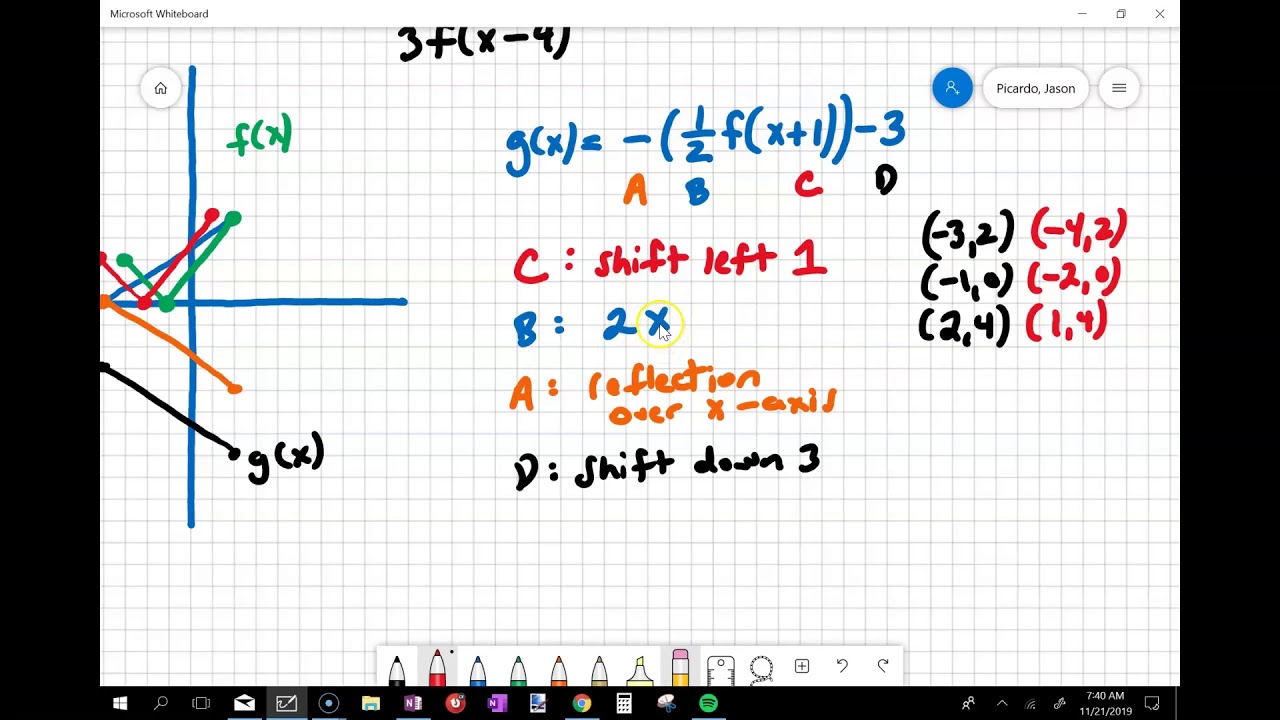 Microsoft Whiteboard
3f(x-4)
Picardo, Jason
f(x)
g(x)= -(1/2 f(x+1))-3
A B C D
(-3,2) (-4,2)
C: shift left 1
(-1,0) (-2,0)
B: 2x
(2,4) (1,4)
A: reflection
over x-axis
g(x)
D: shift down 3
7:40 AM
11/21/2019